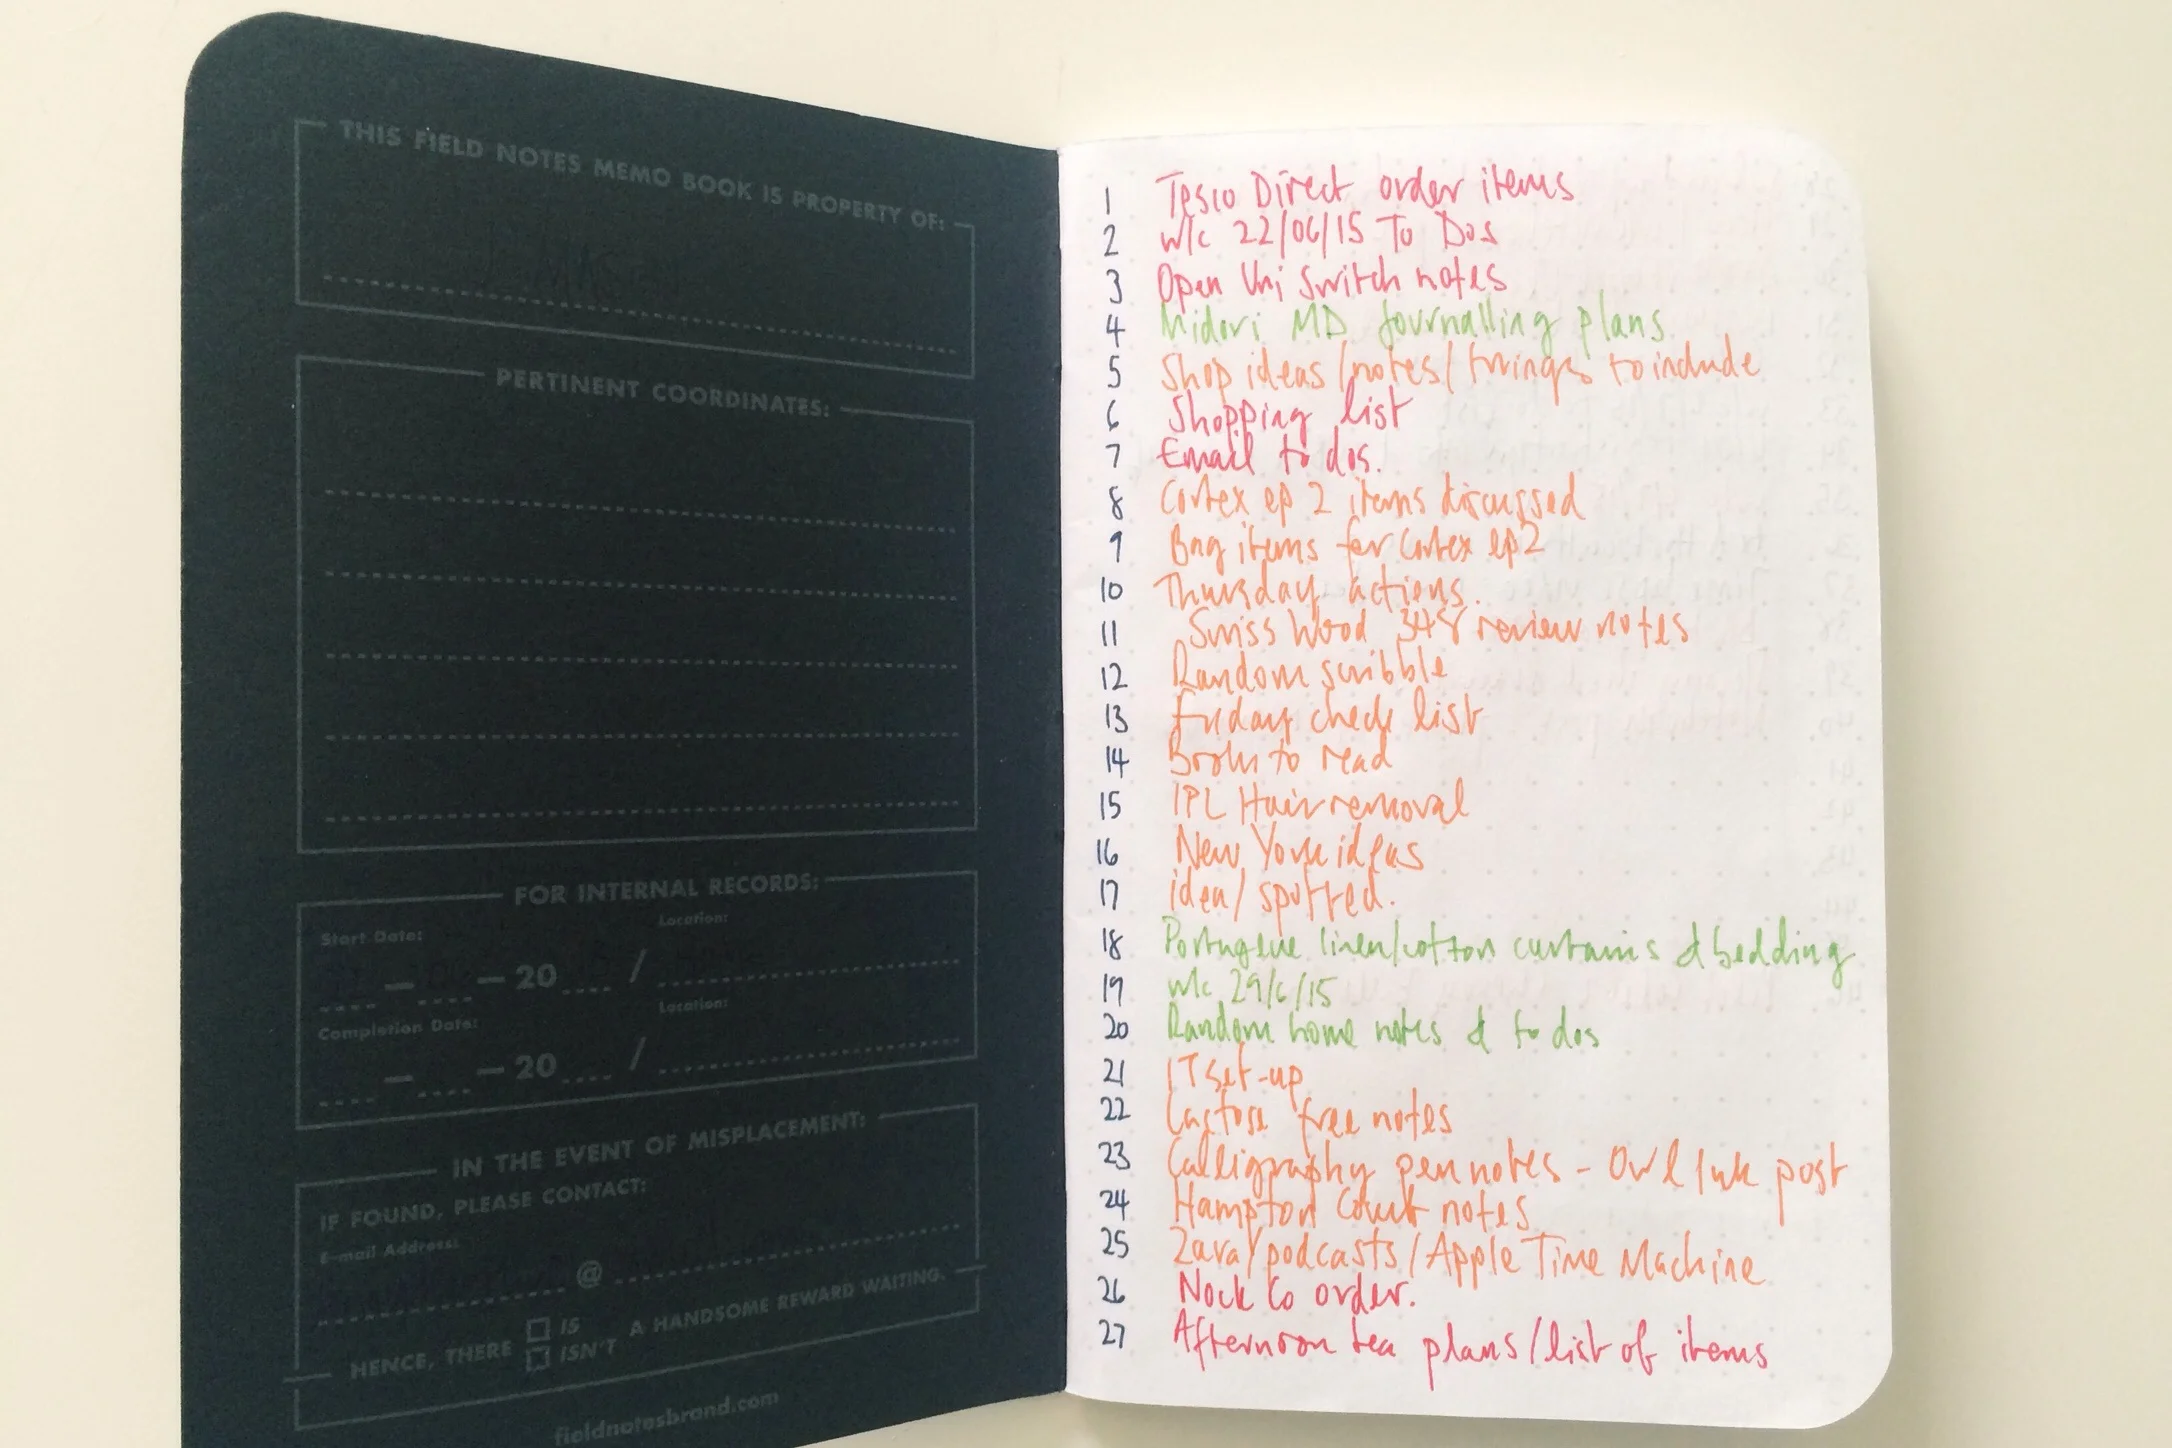 THIS FIELD NOTES MEMO BOOK IS PROPERTY OF:
PERTINENT COORDINATES:
FOR INTERNAL RECORDS:
Start Date:
Location:
— — 20 /
Completion Date:
Location:
— — 20 /
IN THE EVENT OF MISPLACEMENT:
IF FOUND, PLEASE CONTACT:
E-mail Address:
@
HENCE, THERE
IS
ISN'T
A HANDSOME REWARD WAITING.
fieldnotesbrand.com
1 Tesco Direct order items
2 w/c 22/06/15 To Dos
3 Open Uni switch notes
4 Midori MD Journalling plans.
5 Shop ideas/notes/things to include
6 Shopping list
7 Email to dos.
8 Cortex ep 2 items discussed
9 Bag items for Cortex ep2
10 Thursday actions.
11 Swiss Wood 348 review notes
12 Random scribble
13 Friday check list
14 Books to read
15 IPL Hair removal
16 New York ideas
17 idea/spotted.
18 Portugese linen/cotton curtains & bedding
19 w/c 29/6/15
20 Random home notes & to dos
21 IT set-up
22 Lactose free notes
23 Calligraphy pen notes - Owl Ink post
24 Hampton Court notes
25 Zara/podcasts/Apple Time Machine
26 Nock Co order.
27 Afternoon tea plans/list of items